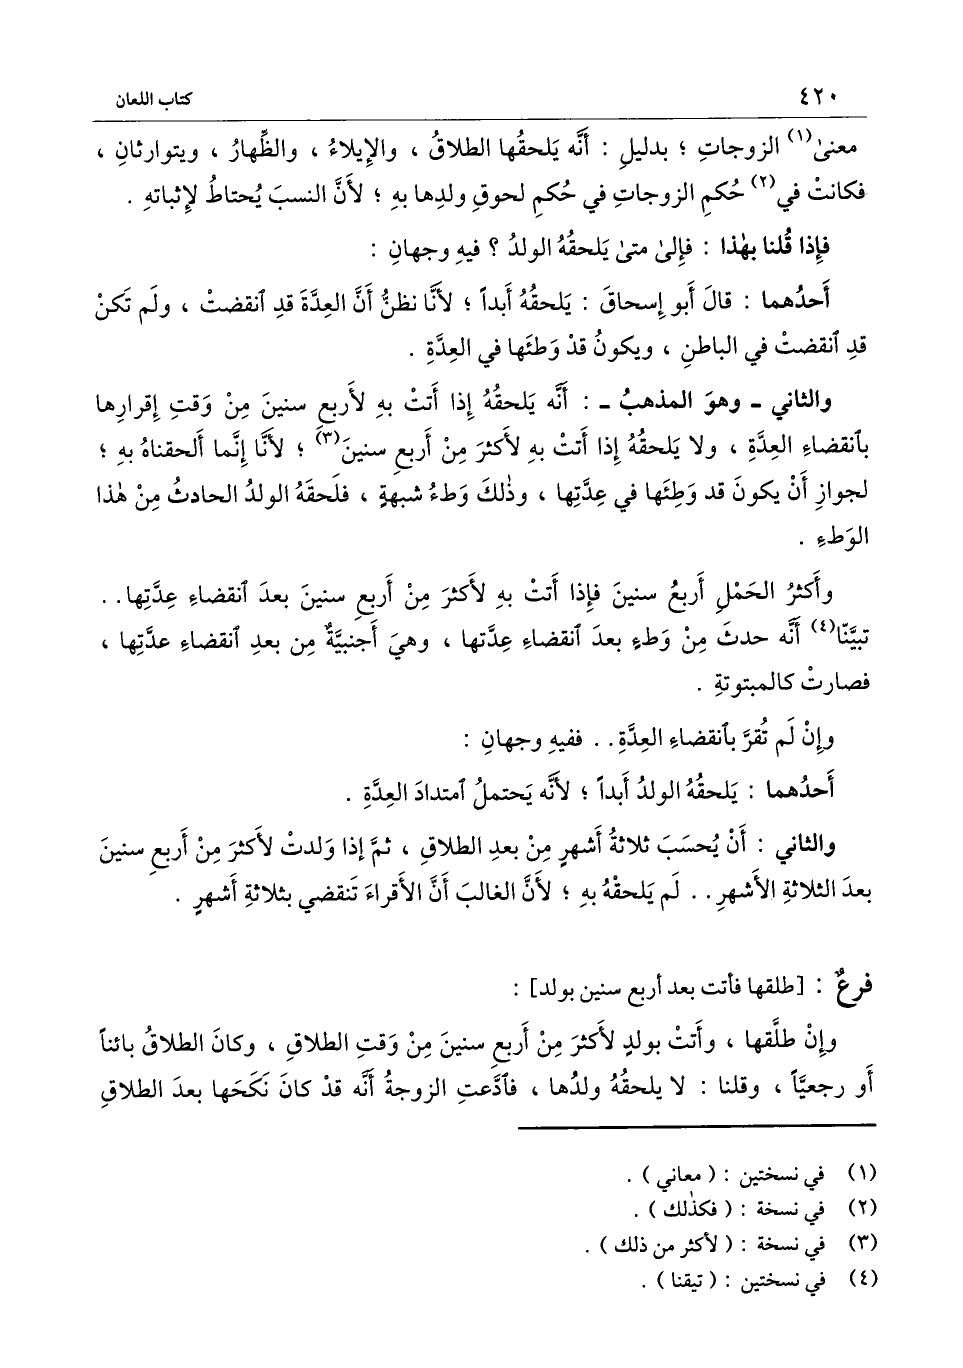 ٤٢٠ كتاب اللعان
معنىٰ(١) الزوجاتِ ؛ بدليلِ : أَنَّه يَلحقُها الطلاقُ ، والإِيلاءُ ، والظِّهارُ ، ويتوارثانِ ،
فكانتْ في(٢) حُكمِ الزوجاتِ في حُكمِ لحوقِ ولدِها بهِ ؛ لأَنَّ النسبَ يُحتاطُ لإِثباتهِ .
فإِذا قُلنا بهٰذا : فإِلىٰ متىٰ يَلحقُهُ الولدُ ؟ فيهِ وجهانِ :
أَحدُهما : قالَ أَبو إِسحاقَ : يَلحقُهُ أَبداً ؛ لأَنَّا نظنُّ أَنَّ العِدَّةَ قدِ ٱنقضتْ ، ولَم تَكنْ
قدِ ٱنقضتْ في الباطنِ ، ويكونُ قدْ وَطئَها في العِدَّةِ .
والثاني ـ وهوَ المذهبُ ـ : أَنَّه يَلحقُهُ إِذا أَتتْ بهِ لأَربعِ سنينَ مِنْ وَقتِ إِقرارِها
بٱنقضاءِ العِدَّةِ ، ولا يَلحقُهُ إِذا أَتتْ بهِ لأَكثرَ مِنْ أَربعِ سنينَ(٣) ؛ لأَنَّا إِنَّما أَلحقناهُ بهِ ؛
لجوازِ أَنْ يكونَ قد وَطِئَها في عِدَّتِها ، وذٰلكَ وَطءُ شبهةٍ ، فلَحقَهُ الولدُ الحادثُ مِنْ هٰذا
الوَطءِ .
وأَكثرُ الحَمْلِ أَربعُ سنينَ فإِذا أَتتْ بهِ لأَكثرَ مِنْ أَربعِ سنينَ بعدَ ٱنقضاءِ عِدَّتِها . .
تبيَّنّا(٤) أَنَّه حدثَ مِنْ وَطءٍ بعدَ ٱنقضاءِ عِدَّتها ، وهيَ أَجنبيَّةٌ مِن بعدِ ٱنقضاءِ عدَّتِها ،
فصارتْ كالمبتوتةِ .
وإِنْ لَم تُقرَّ بٱنقضاءِ العِدَّةِ . . ففيهِ وجهانِ :
أَحدُهما : يَلحقُهُ الولدُ أَبداً ؛ لأَنَّه يَحتملُ ٱمتدادَ العِدَّةِ .
والثاني : أَنْ يُحسَبَ ثلاثةُ أَشهرٍ مِنْ بعدِ الطلاقِ ، ثمَّ إِذا وَلدتْ لأَكثرَ مِنْ أَربعِ سنينَ
بعدَ الثلاثةِ الأَشهرِ . . لَم يَلحقْهُ بهِ ؛ لأَنَّ الغالبَ أَنَّ الأَقراءَ تَنقضي بثلاثةِ أَشهرٍ .
فرعٌ : [طلقها فأتت بعد أربع سنين بولد] :
وإِنْ طلَّقها ، وأَتتْ بولدٍ لأَكثرَ مِنْ أَربعِ سنينَ مِنْ وَقتِ الطلاقِ ، وكانَ الطلاقُ بائناً
أَو رجعيَّاً ، وقلنا : لا يلحقُهُ ولدُها ، فٱدَّعتِ الزوجةُ أَنَّه قدْ كانَ نَكَحَها بعدَ الطلاقِ
(١) في نسختين : ( معاني ) .
(٢) في نسخة : ( فكذٰلك ) .
(٣) في نسخة : ( لأكثر من ذلك ) .
(٤) في نسختين : ( تيقنا ) .